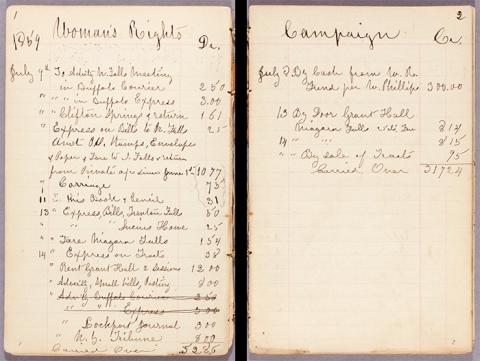 1
1859 Woman's Rights
Dr.
July 7th To Advtg N. Falls Meeting
in Buffalo Courier 250
" " " in Buffalo Express 3.00
" " Clifton Springs & return 161
" Express on Bills to N. Falls 25
Amt Pd. Stamps, Envelopes
& Paper & Fare to N. Falls & return
from Private a/c since June 1st 10.77
7 Carriage 75
11 To this Book & Pencil 31
13 " Express, Bills, Trenton Falls 50
" " " 25
" Fare Niagara Falls 154
14 " Express on Tracts 38
" Rent Grant Hall 2 Sessions 12 00
" Advtg, Small bills, Posting 8 00
" Advtg Buffalo Courier 250
" " Express 3 00
" Lockport Journal 3 00
" N.Y. Tribune 8 00
Carried Over 52 86
2
Campaign
Cr.
July 3 By Cash from W. R.
Fund per W. Phillips 300.00
13 By Door Grant Hall
Niagara Falls 814
14 " " " 815
" " By sale of Tracts 95
Carried Over 317 24